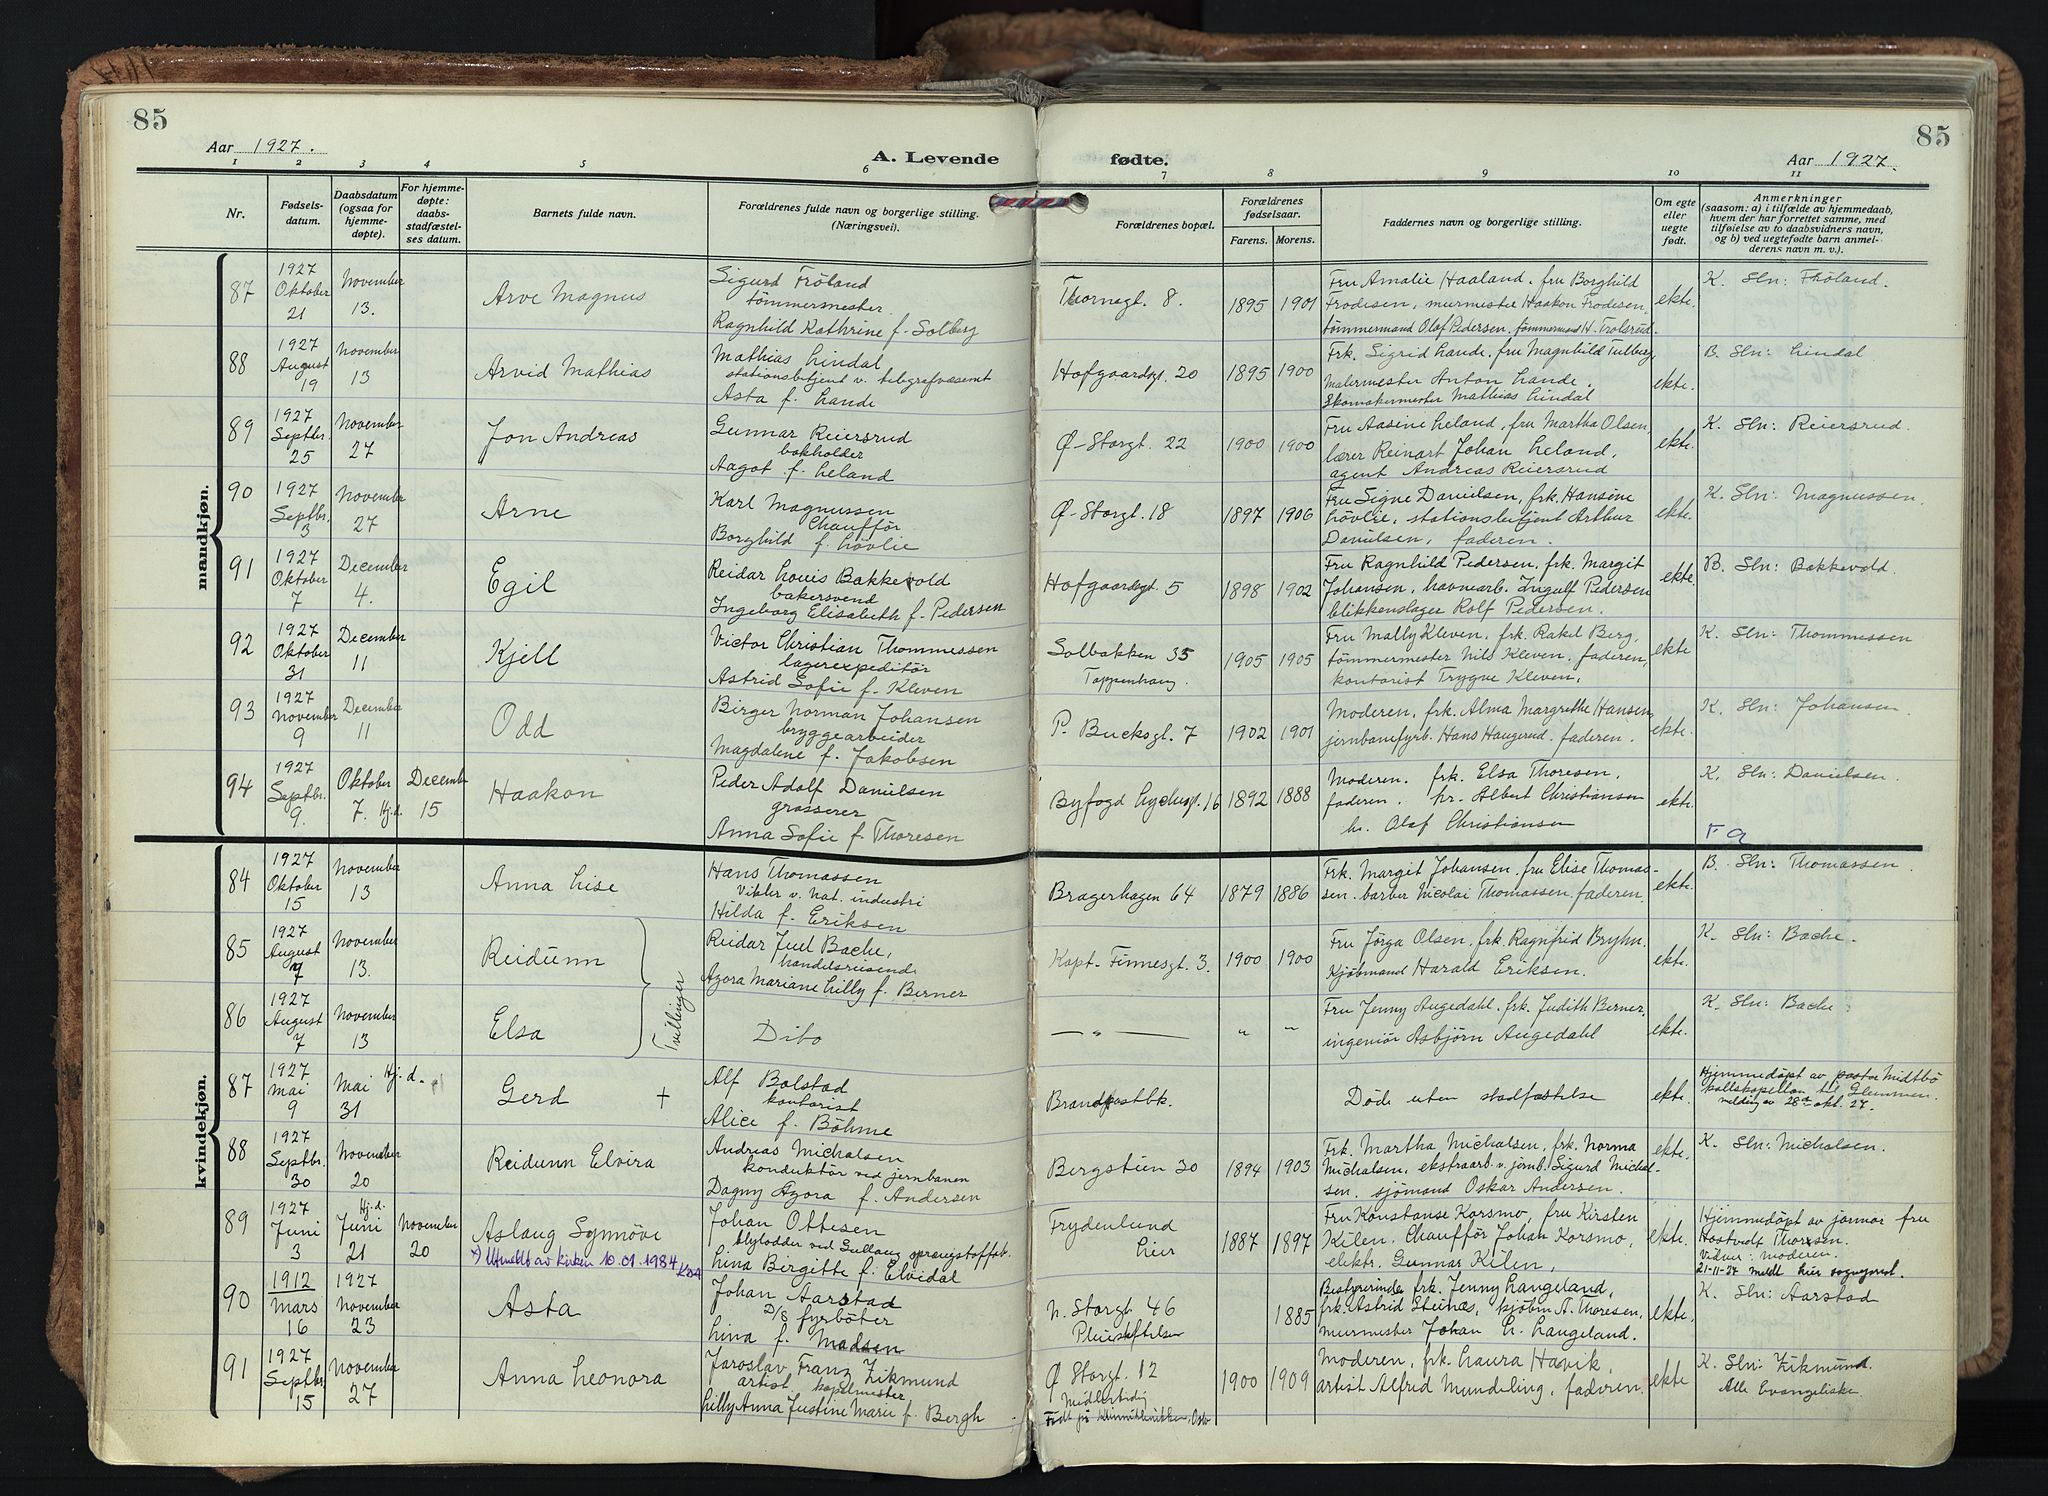 85
85
Aar 1927.
A. Levende
fødte.
Aar 1927.
1 2 3 4 5 6 7 8 9 10 11
Nr.
Fødsels-
datum.
Daabsdatum
(ogsaa for
hjemme-
døpte).
For hjemme-
døpte:
daabs-
stadfæstel-
ses datum.
Barnets fulde navn.
Forældrenes fulde navn og borgerlige stilling.
(Næringsvei).
Forældrenes bopæl.
Forældrenes
fødselsaar.
Farens. Morens.
Faddernes navn og borgerlige stilling.
Om egte
eller
uegte
født.
Anmerkninger
(saasom: a) i tilfælde av hjemmedaab,
hvem der har forrettet samme, med
tilføielse av to daabsvidners navn,
og b) ved uegtefødte barn anmel-
derens navn m. v.).
mandkjøn.
87
1927
Oktober
21
November
13.
Arve Magnus
Sigurd Fröland
tømmermester.
Ragnhild Kathrine f. Solberg
Thornegt. 8.
1895 1901
Fru Amalie Haaland, fru Borghild
Frodesen, murmester Haakon Frodesen,
tömmermand Olaf Pedersen, tömmermand H. Trolsrud.
ekte.
K. Sln: Fröland.
88
1927
August
19
November
13
Arvid Mathias
Mathias Lindal
stationsbetjent v. telegrafvæsent
Asta f. Lande
Hofgaardsgt. 20
1895 1900
Frk. Sigrid Lande, fru Magnhild Tulberg,
Malermester Anton Lande,
Skomakermester Mathias Lindal
ekte.
B. Sln: Lindal
89
1927
Septbr.
25
November
27
Jon Andreas
Gunnar Reiersrud
bokholder
Aagot f. Leland
Ø-Storgt. 22
1900 1900
Fru Aasine Leland, fru Martha Olsen,
lærer Reinart Johan Leland,
agent Andreas Reiersrud
ekte.
K. Sln: Reiersrud.
90
1927
Septbr.
3
November
27
Arne
Karl Magnussen
Chauffør
Borghild f. Lövlie
Ø-Storgt. 18
1897 1906
Fru Signe Danielsen, frk. Hansine
Lövlie, stationsbetjent Arthur
Danielsen, faderen.
ekte.
K. Sln: Magnussen.
91
1927
Oktober
7
December
4.
Egil
Reidar Louis Bakkevold
bakersvend
Ingeborg Elisabeth f. Pedersen
Hofgaardsgt. 5
1898 1902
Fru Ragnhild Pedersen, frk. Margit
Johansen, havnearb. Ingulf Pedersen
blikkenslager Rolf Pedersen.
ekte
B. Sln: Bakkevold.
92
1927
Oktober
31
December
11
Kjell
Victor Christian Thommessen
lagerexpeditör
Astrid Sofie f. Kleven
Solbakken 35
Toppenhaug.
1905 1905
Fru Mally Kleven, frk. Rakel Berg,
tömmermester Nils Kleven, faderen,
kontorist Trygve Kleven.
ekte
K. Sln: Thommessen
93
1927
November
9
December
11
Odd
Birger Norman Johansen
bryggearbeider
Magdalene f. Jakobsen
P. Bucksgt. 7
1902 1901
Moderen, frk. Alma Margrethe Hansen
jernbanefyrb. Hans Haugerud, faderen.
ekte.
K. Sln: Johansen.
94
1927
Septbr.
9.
Oktober
7. Hj.d.
December
15
Haakon
Peder Adolf Danielsen
grosserer
Anna Sofie f. Thoresen
Byfogd Lychesgt. 16
1892 1888
Moderen. frk. Elsa Thoresen,
faderen. hr. Albert Christiansen
hr. Olaf Christiansen
ekte.
K. Sln: Danielsen.
kvindekjøn.
84
1927
Oktober
15
November
13
Anna Lise
Hans Thomassen
Vikler v. Nat. industri
Hilda f. Eriksen
Bragerhagen 64
1879 1886
Frk. Margit Johansen, fru Elise Thomas-
sen. barber Nicolai Thomassen, faderen.
ekte.
B. Sln: Thomassen
85
1927
August
7
November
13.
Reidunn
Tvillinger
Reidar Juel Bache,
handelsreisende
Agora Mariane Lilly f. Berner
Kapt. Finnesgt. 3.
1900 1900
Fru Jörga Olsen, frk. Ragnfrid Bryhn.
Kjöbmand Harald Eriksen.
ekte.
K. Sln: Bache.
86
1927
August
7
November
13
Elsa
Dito
— " —
" "
Fru Jenny Augedahl, frk. Judith Berner,
ingeniör Asbjörn Augedahl
ekte.
K. Sln: Bache
87
1927
Mai
9
Mai Hj.d.
31
Gerd +
Alf Bolstad
kontorist
Alice f. Böhme
Brandpostbk.
Døde uten stadfæstelse
ekte.
Hjemmedöpt av pastor Midtbö
kallskapellan til Glemmen.
melding av 28de okt. 27.
88
1927
Septbr.
30
November
20
Reidunn Elvira
Andreas Michalsen
konduktör ved jernbanen
Dagny Agora f. Andersen
Bergstien 30
1894 1903
Frk. Martha Michalsen, frk. Norma
Michalsen, ekstraarb. v. jernb. Sigurd Michal-
sen. sjömand Oskar Andersen.
ekte.
K. Sln: Michalsen.
89
1927
Juni
3
Hj.d.
Juni
21
November
20
Aslaug Synnöve
x) Utmeldt av kirken 10.01.1984 KDA
Johan Ottesen
blylodder ved Gullaug sprængstoffab.
Lina Birgitte f. Elvidal
Frydenlund
Lier
1887 1897
Fru Konstanse Korsmo, fru Kirsten
Kilen, Chaufför Johan Korsmo,
elektr. Gunnar Kilen,
ekte.
Hjemmedöpt av jormor fru
Hostvedt Thoresen.
Vidner: moderen.
21-11-27 meldt hier sogneprest.
90
1912
Mars
16
1927
November
23
Asta
Johan Aarstad
D/S fyrböter
Lina f. Madsen
N. Storgt. 46
Pleiestiftelsen
1885
Bestyrerinde frk. Jenny Langeland,
frk. Astrid Steinås, kjöbm A. Thoresen,
murmester Johan L. Langeland.
ekte.
K. Sln: Aarstad
91
1927
Septbr.
15
November
27
Anna Leonora
Jaroslav Franz Zikmund
artist kapelmester
Lilly Anna Justine Marie f. Bergh
Ø Storgt. 12
Midlertidig
Födt på Kvinneklinikken, Oslo
1900 1909
Moderen, frk. Laura Havik,
artist Alfred Mundeling, faderen.
ekte
K. Sln: Zikmund.
Alle Evangeliske.